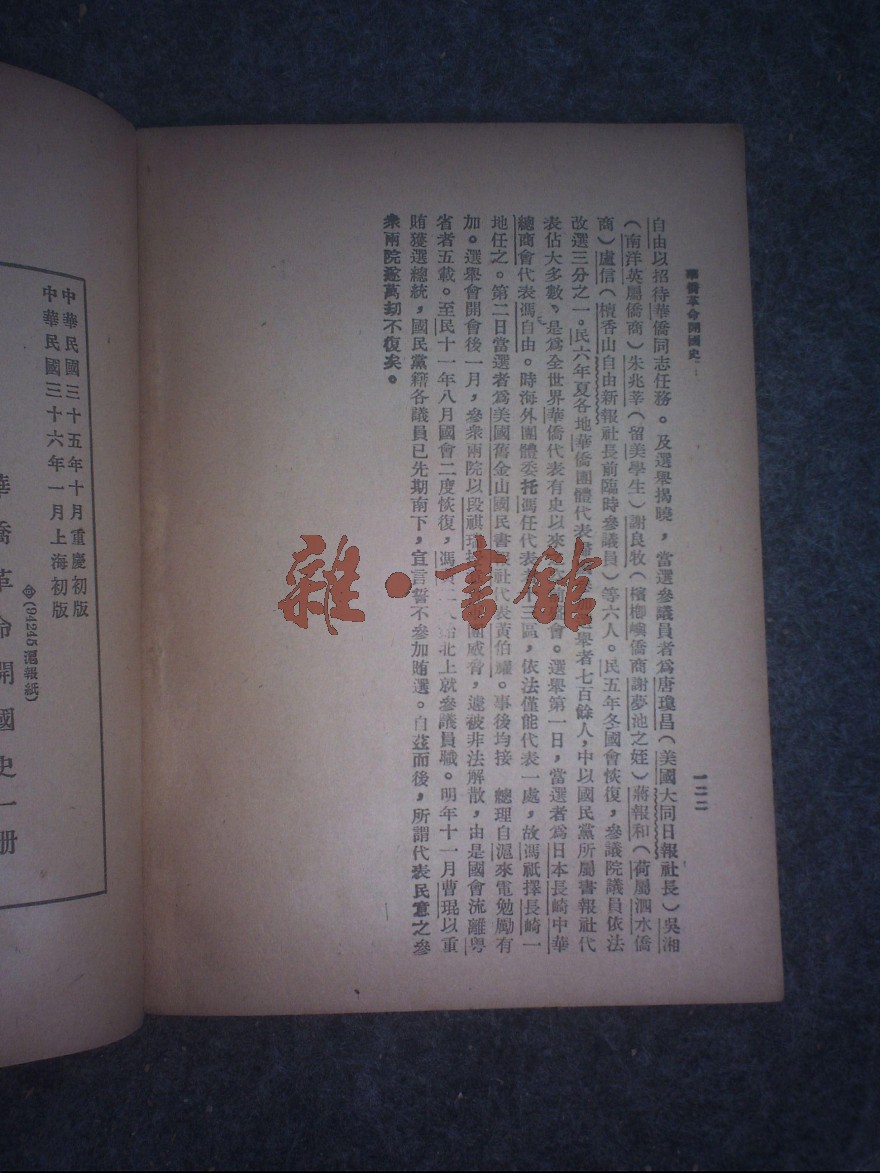 華僑革命開國史
一二二
自由以招待華僑同志任務。及選舉揭曉，當選參議員者爲唐瓊昌（美國大同日報社長）吳湘
（南洋英屬僑商）朱兆莘（留美學生）謝良牧（檳榔嶼僑商謝夢池之姪）蔣報和（荷屬泗水僑
商）盧信（檀香山自由新報社長前臨時參議員）等六人。民五年冬國會恢復，參議院議員依法
改選三分之一。民六年夏各地華僑團體代表 舉者七百餘人，中以國民黨所屬書報社代
表佔大多數，是爲全世界華僑代表有史以來 會。選舉第一日，當選者爲日本長崎中華
總商會代表馮自由。時海外團體委托馮任代表者 三區，依法僅能代表一處，故馮祇擇長崎一
地任之。第二日當選者爲美國舊金山國民書報社代表黃伯耀。事後均接 總理自滬來電勉勵有
加。選舉會開會後一月，參衆兩院以段祺瑞 威脅，遽被非法解散，由是國會流離粵
省者五載。至民十一年八月國會二度恢復，馮 北上就參議員職。明年十一月曹琨以重
賄獲選總統，國民黨籍各議員已先期南下，宣言誓不參加賄選。自茲而後，所謂代表民意之參
衆兩院遂萬劫不復矣。
中華民國三十五年十月重慶初版
中華民國三十六年一月上海初版
(94245滬報紙)
華僑革命開國史一册
雜·書館